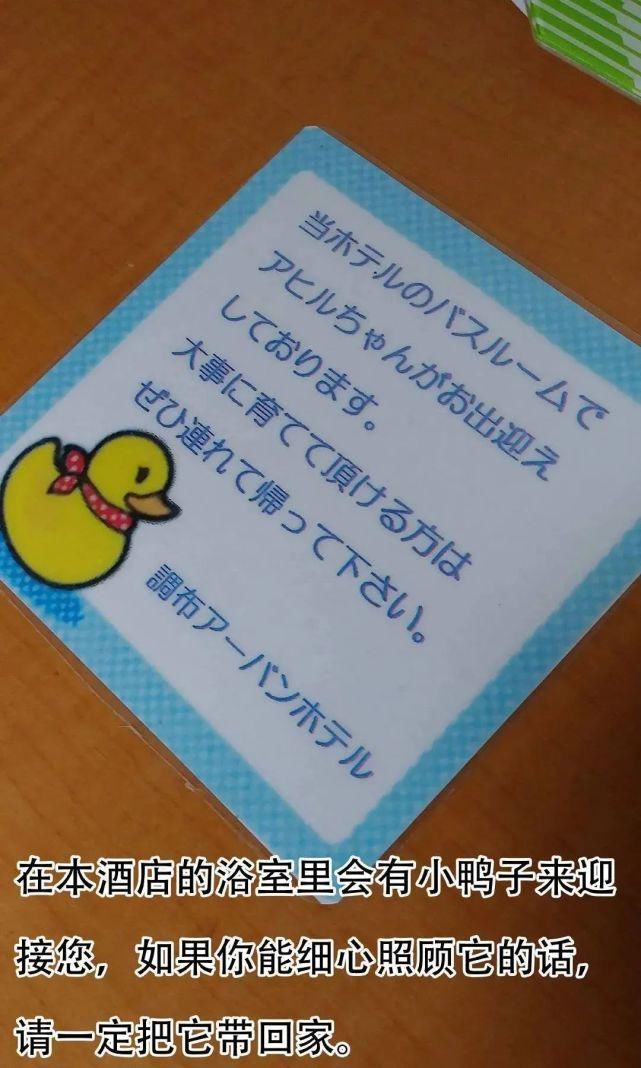 当ホテルのバスルームで
アヒルちゃんがお出迎え
しております。
大事に育てて頂ける方は
ぜひ連れて帰って下さい。
調布アーバンホテル
在本酒店的浴室里会有小鸭子来迎
接您，如果你能细心照顾它的话，
请一定把它带回家。